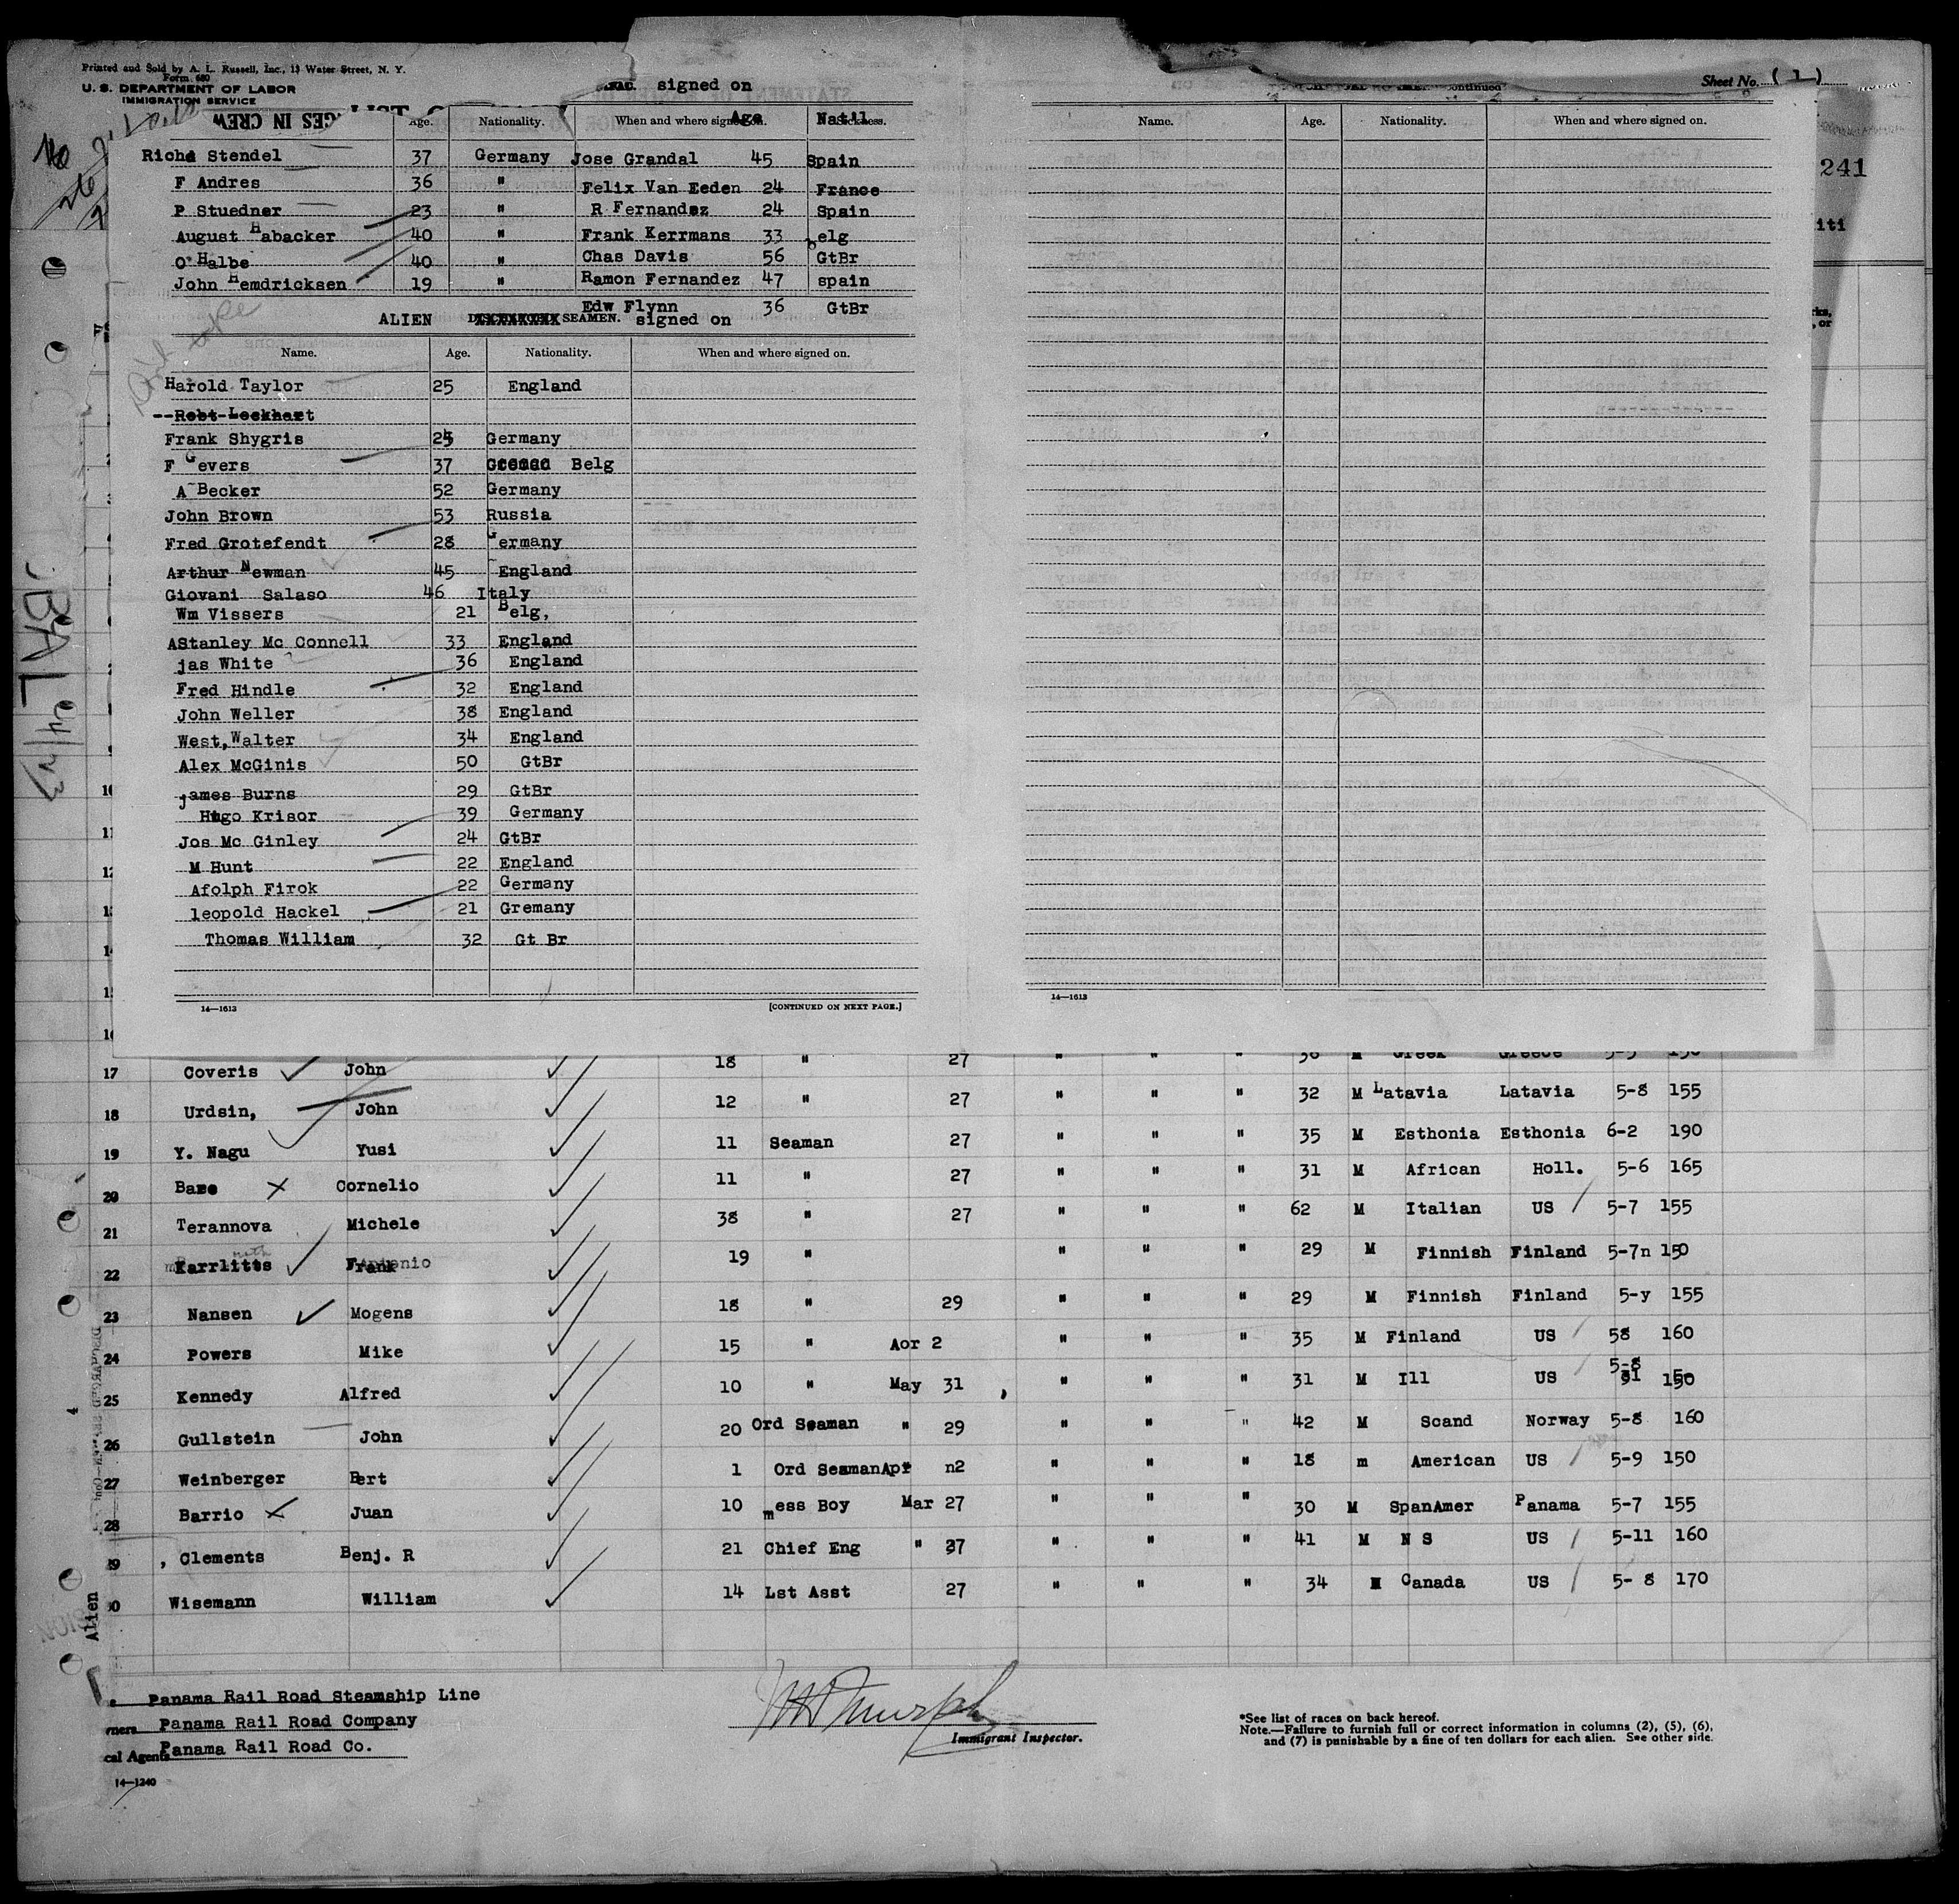 Printed and Sold by A. L. Russell, Inc., 13 Water Street, N. Y.
Form 680
U. S. DEPARTMENT OF LABOR
IMMIGRATION SERVICE
signed on
Sheet No. (1)
241
Age. Nationality. When and where signed on. Age Natil
Richd Stendel 37 Germany Jose Grandal 45 Spain
F Andres 36 " Felix Van Eeden 24 France
P Stuedner 23 " R Fernandez 24 Spain
August Habacker 40 " Frank Kerrmans 33 belg
O Halbe 40 " Chas Davis 56 GtBr
John Hemdricksen 19 " Ramon Fernandez 47 spain
Edw Flynn 36 GtBr
ALIEN SEAMEN. signed on
Name. Age. Nationality. When and where signed on.
Harold Taylor 25 England
--Robt-Lockhart
Frank Shygris 25 Germany
F Gevers 37 Belg
A Becker 52 Germany
John Brown 53 Russia
Fred Grotefendt 28 Germany
Arthur Newman 45 England
Giovani Salaso 46 Italy
Wm Vissers 21 Belg,
AStanley Mc Connell 33 England
jas White 36 England
Fred Hindle 32 England
John Weller 38 England
West, Walter 34 England
Alex McGinis 50 GtBr
james Burns 29 GtBr
Hugo Krisor 39 Germany
Jos Mc Ginley 24 GtBr
M Hunt 22 England
Afolph Firok 22 Germany
leopold Hackel 21 Gremany
Thomas William 32 Gt Br
14—1613 [CONTINUED ON NEXT PAGE.]
Name. Age. Nationality. When and where signed on.
14—1613
BAL
17 Coveris John 18 " 27 " " " 36 M Greek Greece 5-5 150
18 Urdsin, John 12 " 27 " " " 32 M Latavia Latavia 5-8 155
19 Y. Nagu Yusi 11 Seaman 27 " " " 35 M Esthonia Esthonia 6-2 190
20 Base Cornelio 11 " 27 " " " 31 M African Holl. 5-6 165
21 Terannova Michele 38 " 27 " " " 62 M Italian US 5-7 155
22 Karrlitts Frank 19 " " " " 29 M Finnish Finland 5-7n 150
23 Nansen Mogens 18 " 29 " " " 29 M Finnish Finland 5-y 155
24 Powers Mike 15 " Aor 2 " " " 35 M Finland US 58 160
25 Kennedy Alfred 10 " May 31 , " " " 31 M Ill US 5-8 150
26 Gullstein John 20 Ord Seaman " 29 " " " 42 M Scand Norway 5-8 160
27 Weinberger Bert 1 Ord Seaman Apr n2 " " " 18 m American US 5-9 150
28 Barrio Juan 10 mess Boy Mar 27 " " " 30 M SpanAmer Panama 5-7 155
29 , Clements Benj. R 21 Chief Eng " 27 " " " 41 M N S US 5-11 160
30 Wisemann William 14 Lst Asst 27 " " " 34 M Canada US 5- 8 170
Alien
Panama Rail Road Steamship Line
Panama Rail Road Company
cal Agents Panama Rail Road Co.
14—1240
Immigrant Inspector.
*See list of races on back hereof.
Note.—Failure to furnish full or correct information in columns (2), (5), (6),
and (7) is punishable by a fine of ten dollars for each alien. See other side.